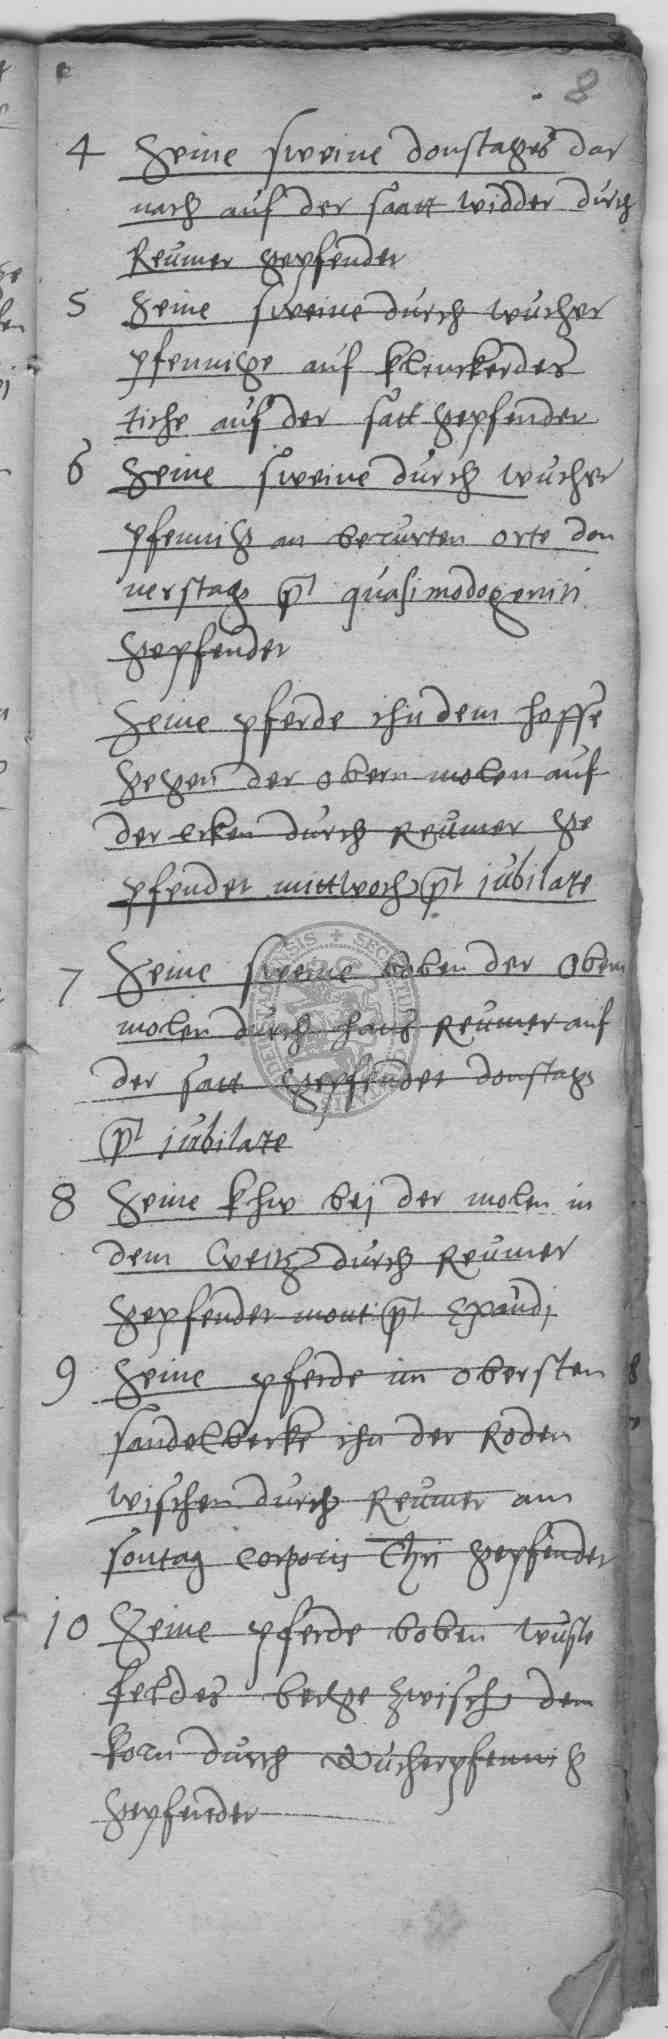 8
4 Seine sweine donstages dar
nach auf der saatt widder durch
Reumer gepfendet
5 Seine sweine durch wucher
pfennige auf klenckerdes
tiche auf der satt gepfendet
6 Seine sweine durch wucher
pfennig an berurten orte don
nerstag pt quasimodogeniti
gepfendet
Seine pferde ihn dem hoffe
gegen der obern molen auf
der ecken durch Reumer ge
pfendet mittwoch pt jubilate
7 Seine sweine boben der Obern
molen durch hans Reumer auf
der satt gepfendet donstag
pt jubilate
8 Seine khw bej der molen in
dem durch Reumer
gepfendet mont pt Exaudj
9 Seine pferde im obersten
sandelberke ihn der Roden
wischen durch Reumer am
sontag Corporis Chri gepfendet
10 Seine pferde boben wuste
feldes berge zwisch dem
korn durch Wucherpfennig
gepfendet